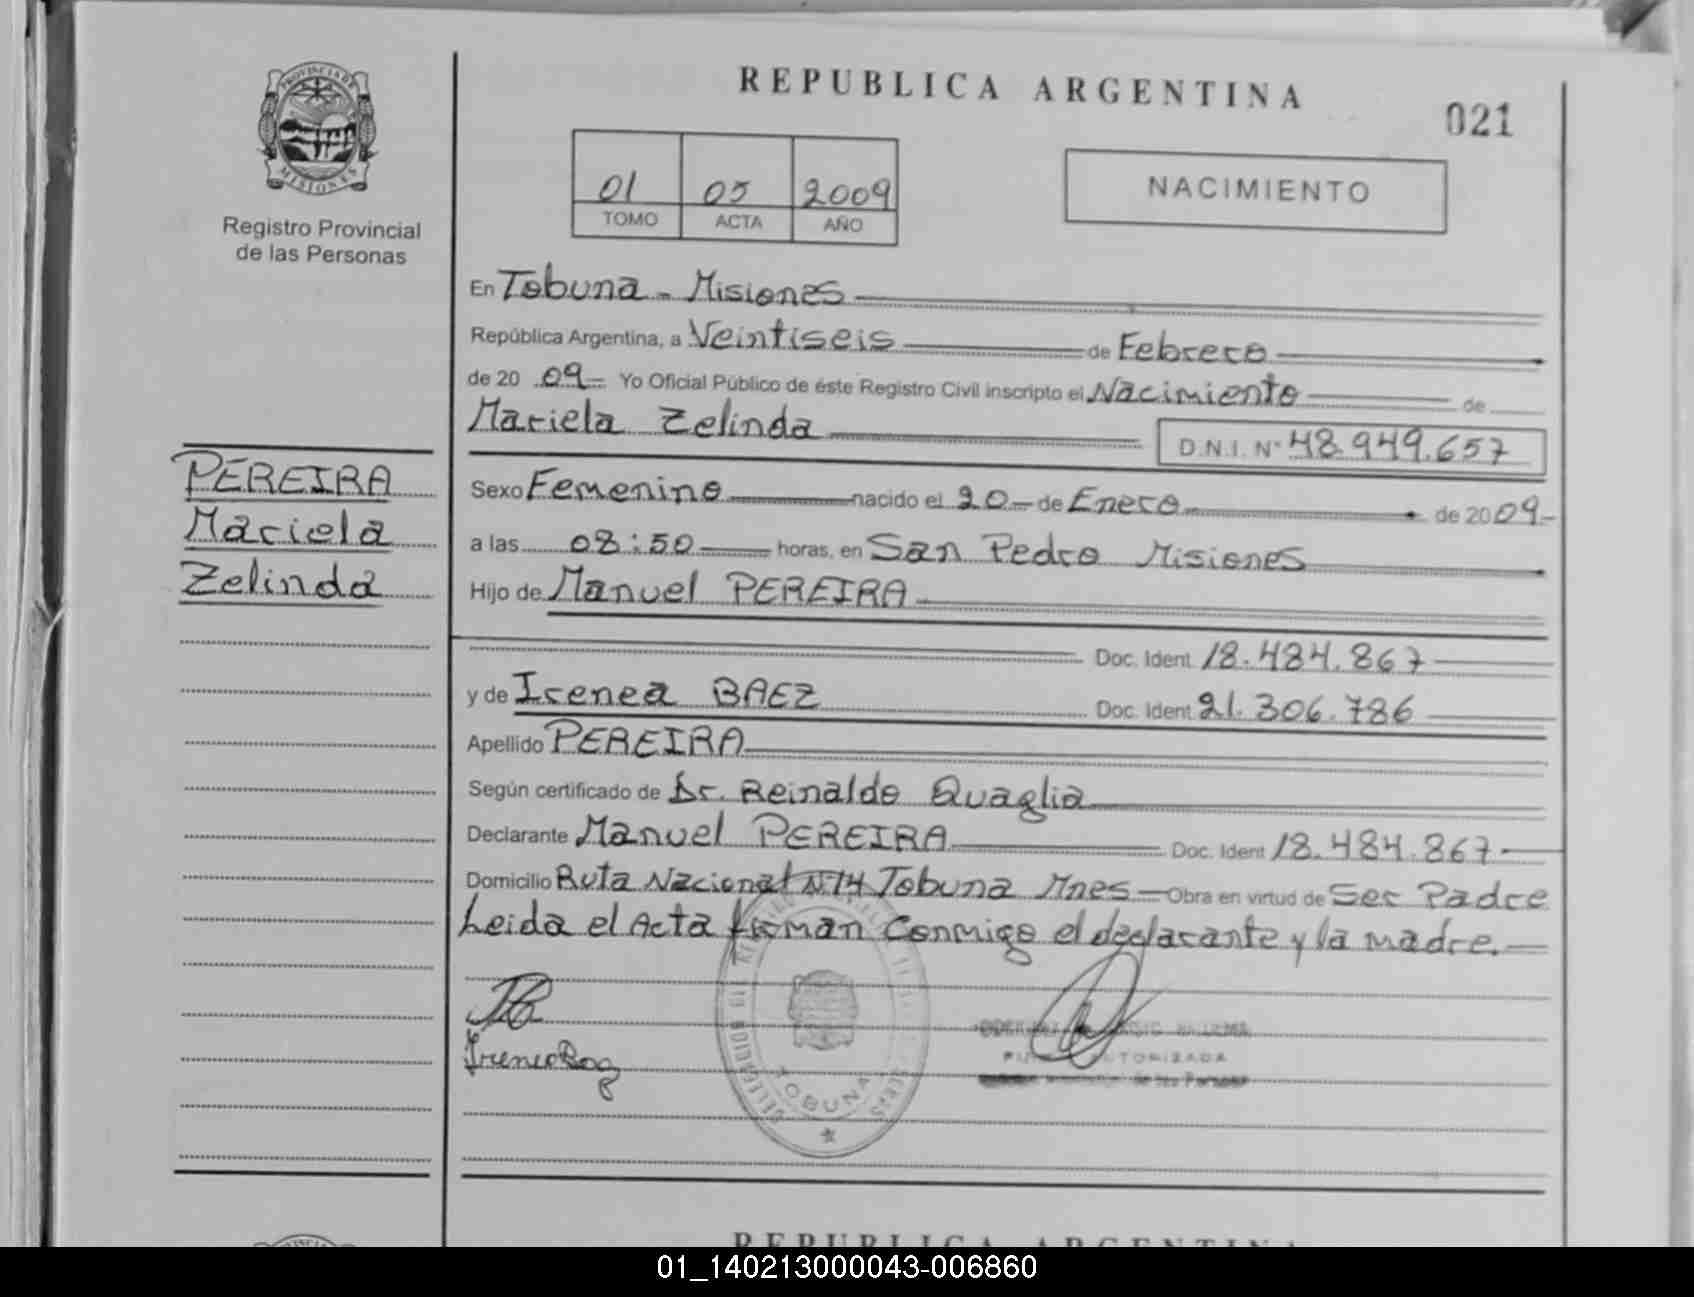 REPUBLICA ARGENTINA
021
PROVINCIA DE
MISIONES
Registro Provincial
de las Personas
01 05 2009
TOMO ACTA AÑO
NACIMIENTO
En Tobuna - Misiones
República Argentina, a Veintiseis de Febrero
de 20 09 Yo Oficial Público de éste Registro Civil inscripto el Nacimiento de
Mariela Zelinda D.N.I. Nº 48.949.657
PEREIRA
Mariela
Zelinda
Sexo Femenino nacido el 20 de Enero de 20 09
a las 08:50 horas, en San Pedro Misiones
Hijo de Manuel PEREIRA
Doc. Ident. 18.484.867
y de Irenea BAEZ Doc. Ident. 21.306.786
Apellido PEREIRA
Según certificado de Dr. Reinaldo Quaglia
Declarante Manuel PEREIRA Doc. Ident 18.484.867
Domicilio Ruta Nacional Nº14 Tobuna Mnes Obra en virtud de Ser Padre
Leida el Acta firman Conmigo el declarante y la madre.
TOBUNA
AUTORIZADA
de las Personas
REPUBLICA ARGENTINA
01_140213000043-006860